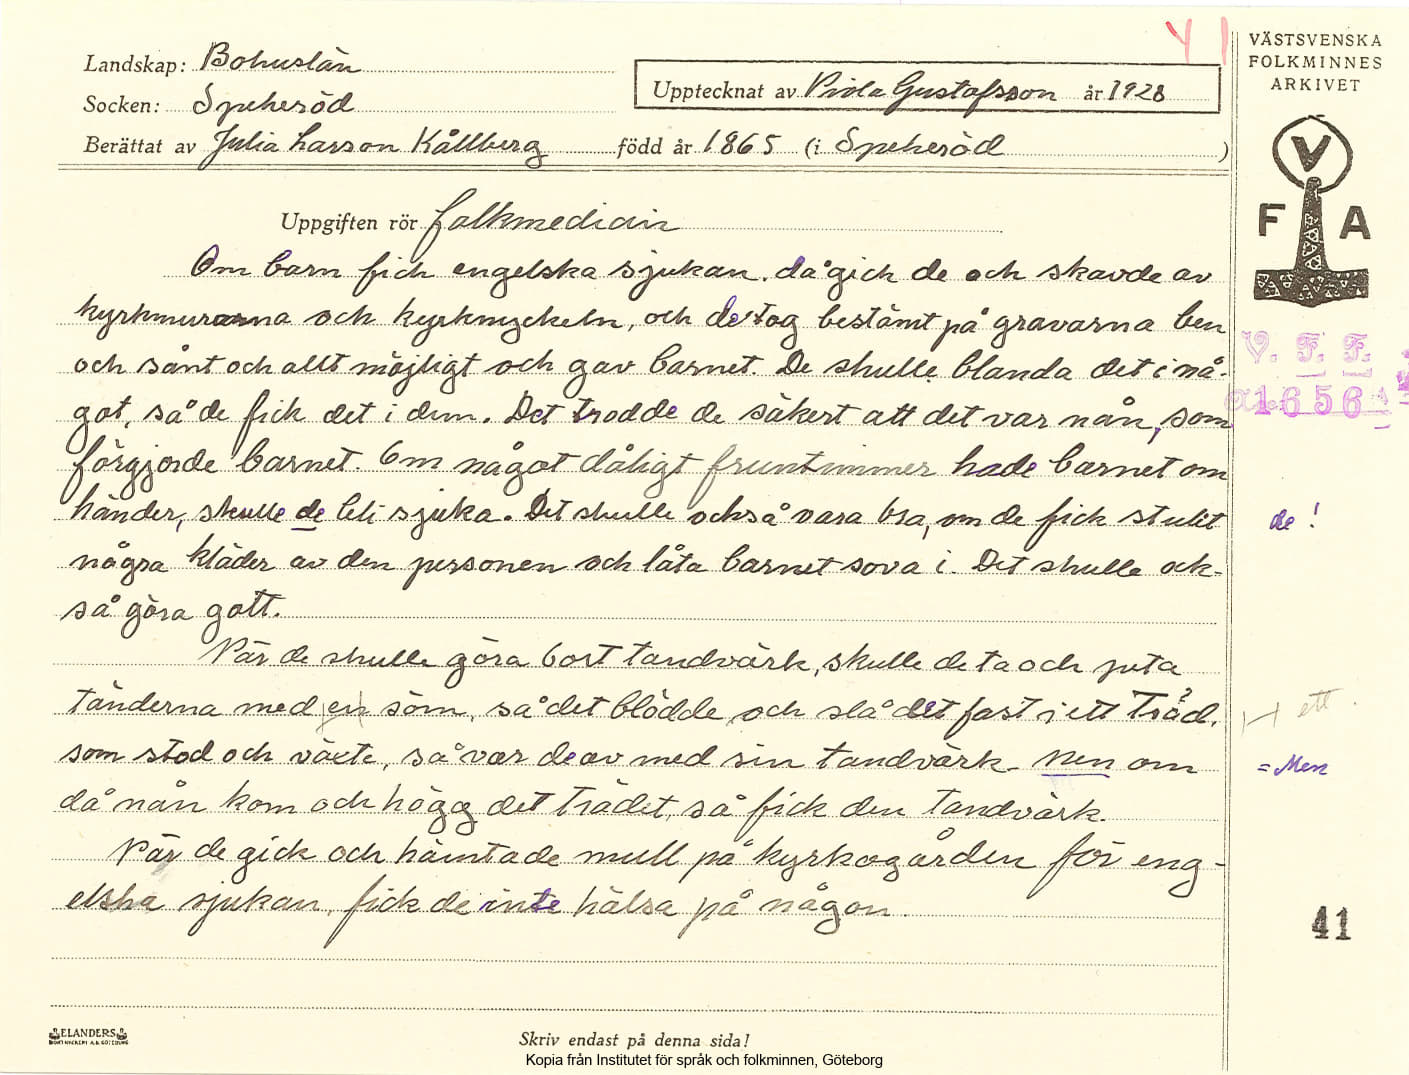 41
Landskap: Bohuslän
Socken: Spekeröd
Upptecknat av Viola Gustafsson år 1928
Berättat av Julia Larson Kållberg född år 1865 (i Spekeröd )
VÄSTSVENSKA
FOLKMINNES
ARKIVET
V
F A
Uppgiften rör folkmedicin
Om barn fick engelska sjukan, då gick de och skavde av
kyrkmurarna och kyrknyckeln, och de tog bestämt på gravarna ben
och sånt och allt möjligt och gav barnet. De skulle blanda det i nå-
got, så de fick det i dem. Det trodde de säkert att det var nån, som
förgjorde barnet. Om något dåligt fruntimmer hade barnet om
händer, skulle de bli sjuka. Det skulle också vara bra, om de fick stulit
några kläder av den personen och låta barnet sova i. Det skulle ock-
så göra gott.
När de skulle göra bort tandvärk, skulle de ta och peta
tänderna med en söm, så det blödde, och slå det fast i ett träd,
som stod och växte, så var de av med sin tandvärk. Nen om
då nån kom och högg det trädet, så fick den tandvärk.
När de gick och hämtade mull på kyrkogården för eng-
elska sjukan, fick de inte hälsa på någon.
V. F. F.
1656
de!
ett
= Men
41
ELANDERS
Skriv endast på denna sida!
Kopia från Institutet för språk och folkminnen, Göteborg